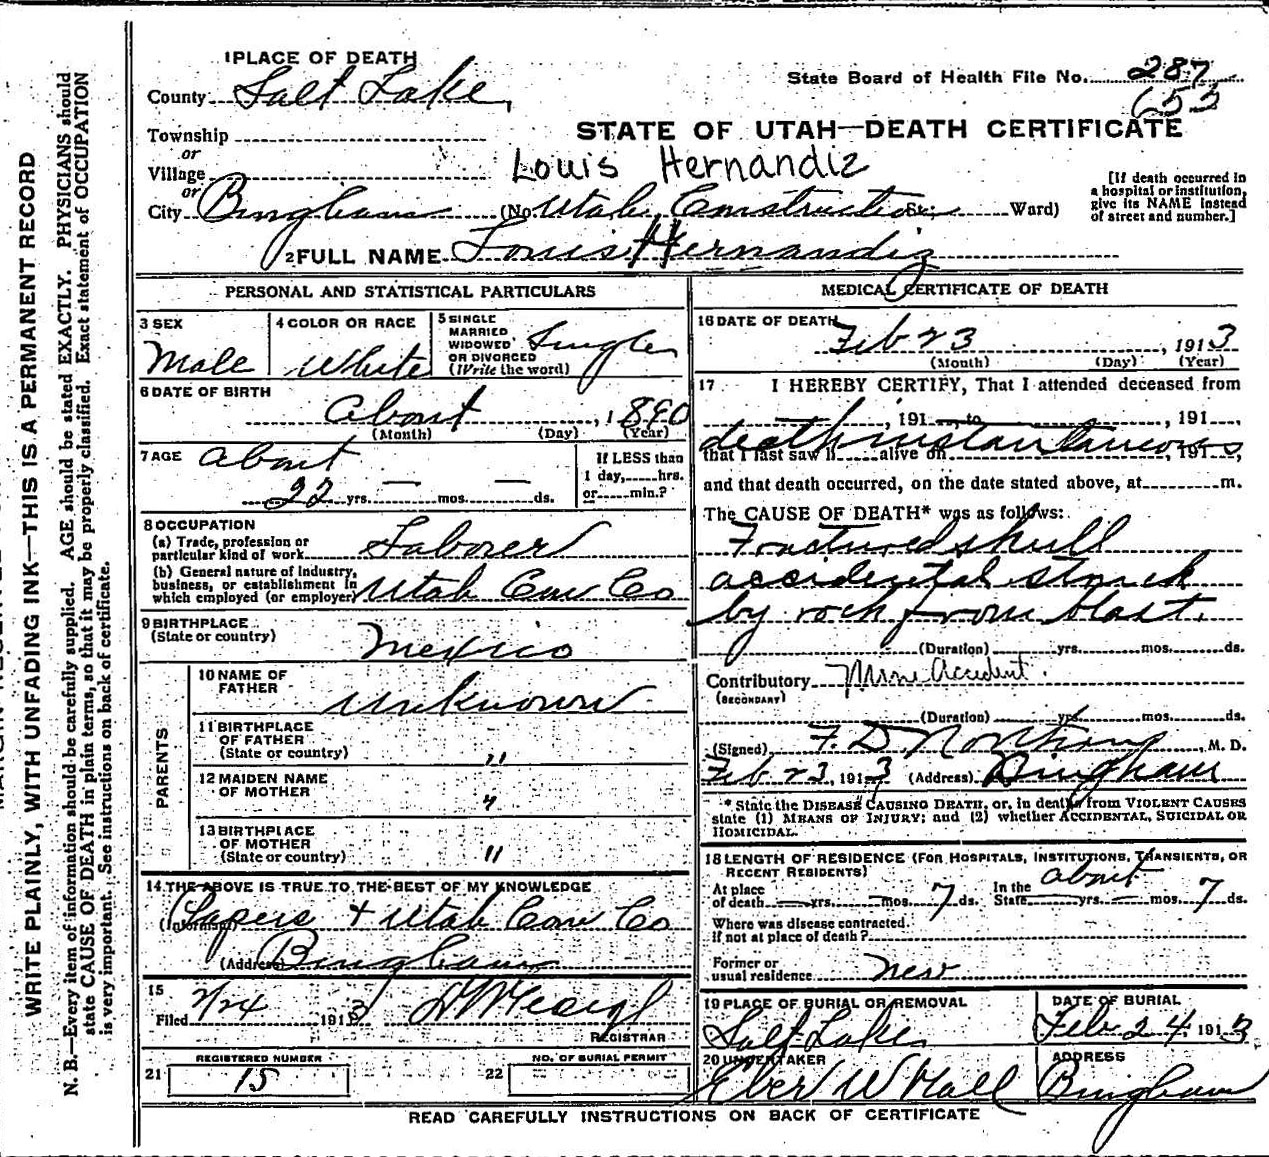 1 PLACE OF DEATH
County Salt Lake
State Board of Health File No. 287
653
Township
or
Village
or
STATE OF UTAH—DEATH CERTIFICATE
Louis Hernandiz
City Bingham (No Utah Construction St; Ward)
[If death occurred in
a hospital or institution,
give its NAME instead
of street and number.]
2 FULL NAME Louis Hernandiz
PERSONAL AND STATISTICAL PARTICULARS
3 SEX
Male
4 COLOR OR RACE
White
5 SINGLE
MARRIED
WIDOWED
OR DIVORCED
(Write the word)
Single
6 DATE OF BIRTH
about , 1890
(Month) (Day) (Year)
7 AGE about
22 yrs. — mos. — ds.
If LESS than
1 day, hrs.
or min.?
8 OCCUPATION
(a) Trade, profession or
particular kind of work Laborer
(b) General nature of industry,
business, or establishment in
which employed (or employer) Utah Con Co
9 BIRTHPLACE
(State or country)
Mexico
PARENTS
10 NAME OF
FATHER
unknown
11 BIRTHPLACE
OF FATHER
(State or country) "
12 MAIDEN NAME
OF MOTHER "
13 BIRTHPLACE
OF MOTHER
(State or country) "
14 THE ABOVE IS TRUE TO THE BEST OF MY KNOWLEDGE
(Informant) Papers + Utah Con Co
(Address) Bingham
15
Filed 2/24 1913
REGISTRAR
REGISTERED NUMBER
21 15
NO. OF BURIAL PERMIT
22
MEDICAL CERTIFICATE OF DEATH
16 DATE OF DEATH
Feb 23 , 1913
(Month) (Day) (Year)
17 I HEREBY CERTIFY, That I attended deceased from
, 191 , to , 191 ,
death instantaneous
that I last saw h alive on , 191 ,
and that death occurred, on the date stated above, at m.
The CAUSE OF DEATH* was as follows:
Fractured skull
accidental struck
by rock from blast.
(Duration) yrs. mos. ds.
Contributory Mine Accident.
(SECONDARY)
(Duration) yrs. mos. ds.
(Signed) F. D. , M. D.
Feb 23, 1913 (Address) Bingham
* State the DISEASE CAUSING DEATH, or, in death from VIOLENT CAUSES
state (1) MEANS OF INJURY; and (2) whether ACCIDENTAL, SUICIDAL OR
HOMICIDAL.
18 LENGTH OF RESIDENCE (FOR HOSPITALS, INSTITUTIONS, TRANSIENTS, OR
RECENT RESIDENTS)
At place
of death — yrs. — mos. 7 ds.
In the
State — yrs. — mos. 7 ds.
about
Where was disease contracted.
If not at place of death?
Former or
usual residence New
19 PLACE OF BURIAL OR REMOVAL
Salt Lake
DATE OF BURIAL
Feb 24 1913
20 UNDERTAKER
Eber W Hall
ADDRESS
Bingham
READ CAREFULLY INSTRUCTIONS ON BACK OF CERTIFICATE
WRITE PLAINLY, WITH UNFADING INK—THIS IS A PERMANENT RECORD
N. B.—Every item of information should be carefully supplied. AGE should be stated EXACTLY. PHYSICIANS should
state CAUSE OF DEATH in plain terms, so that it may be properly classified. Exact statement of OCCUPATION
is very important. See instructions on back of certificate.